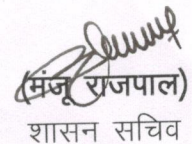 (मंजू राजपाल)
शासन सचिव